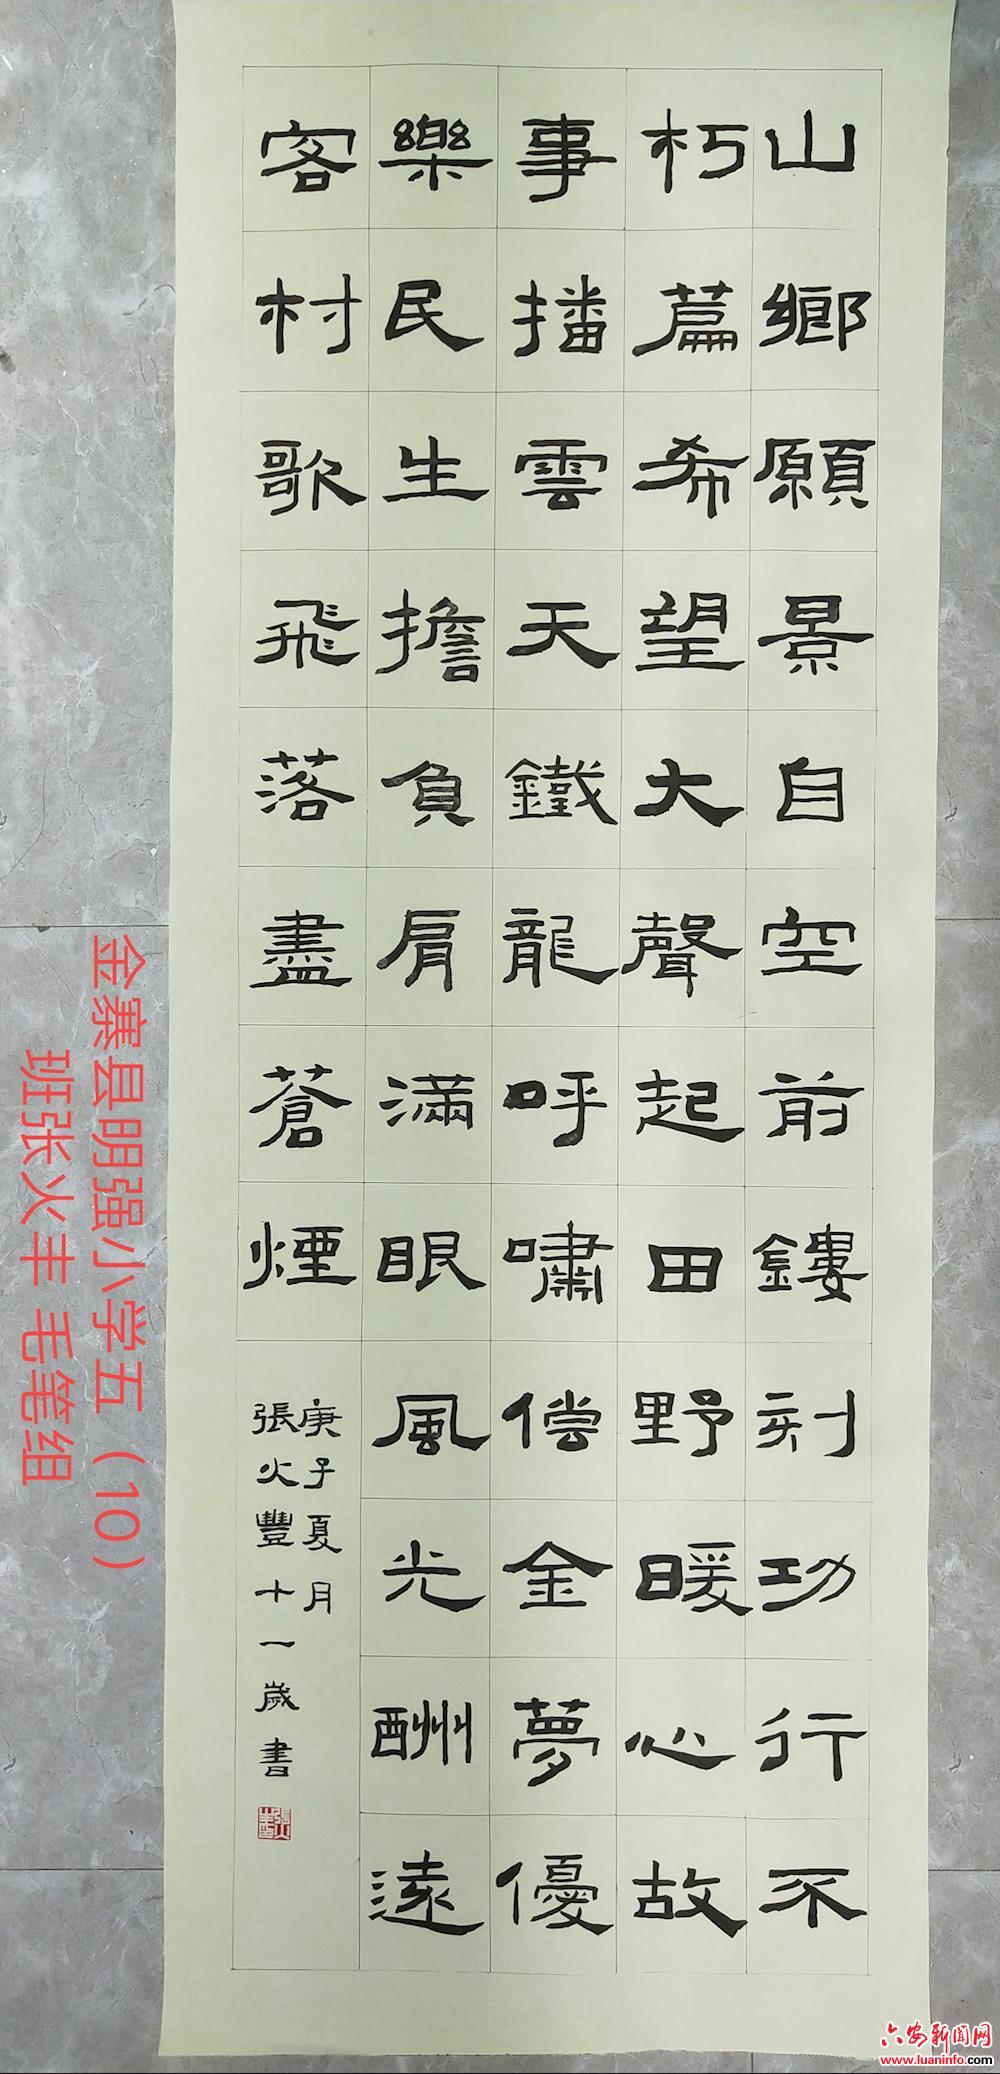 山鄉願景自空前鏤刻功行不
朽篇希望大聲起田野暖心故
事播雲天鐵龍呼嘯償金夢優
樂民生擔負肩滿眼風光酬遠
客村歌飛落盡蒼煙
庚子夏月
張火豐十一歲書
金寨县明强小学五（10）
班张火丰 毛笔组
六安新闻网
www.luaninfo.com